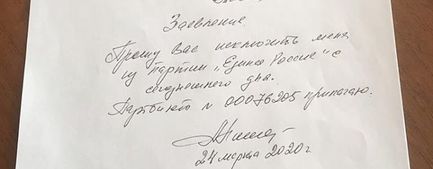 Заявление
Прошу Вас исключить меня
из партии „Единая Россия" с
сегодняшнего дня.
Партбилет № 00076205 прилагаю.
24 марта 2020 г.